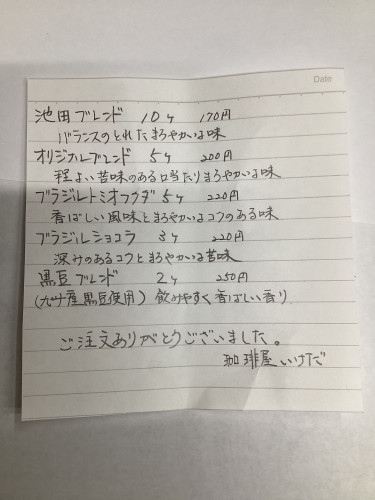 Date
池田ブレンド 10ヶ 170円
バランスのとれたまろやかな味
オリジナルブレンド 5ヶ 200円
程よい苦味のある口当たりまろやかな味
ブラジルトミオフクダ 5ヶ 220円
香ばしい風味とまろやかなコクのある味
ブラジルショコラ 3ヶ 220円
深みのあるコクとまろやかな苦味
黒豆ブレンド 2ヶ 250円
(九州産黒豆使用) 飲みやすく香ばしい香り
ご注文ありがとうございました。
珈琲屋いけだ